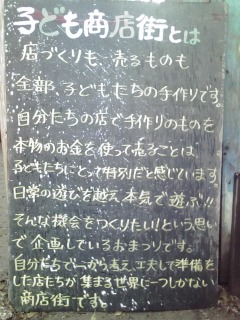 子ども商店街とは
店づくりも、売るものも
全部、子どもたちの手作りです。
自分たちの店で手作りのものを
本物のお金を使って売ることは
子どもたちにとって特別だと感じています。
日常の遊びを越え、本気で遊ぶ!!
そんな機会をつくりたい!という思い
で企画しているおまつりです。
自分たちで一から考え、工夫して準備を
した店たちが集まる世界に一つしかない
商店街です。